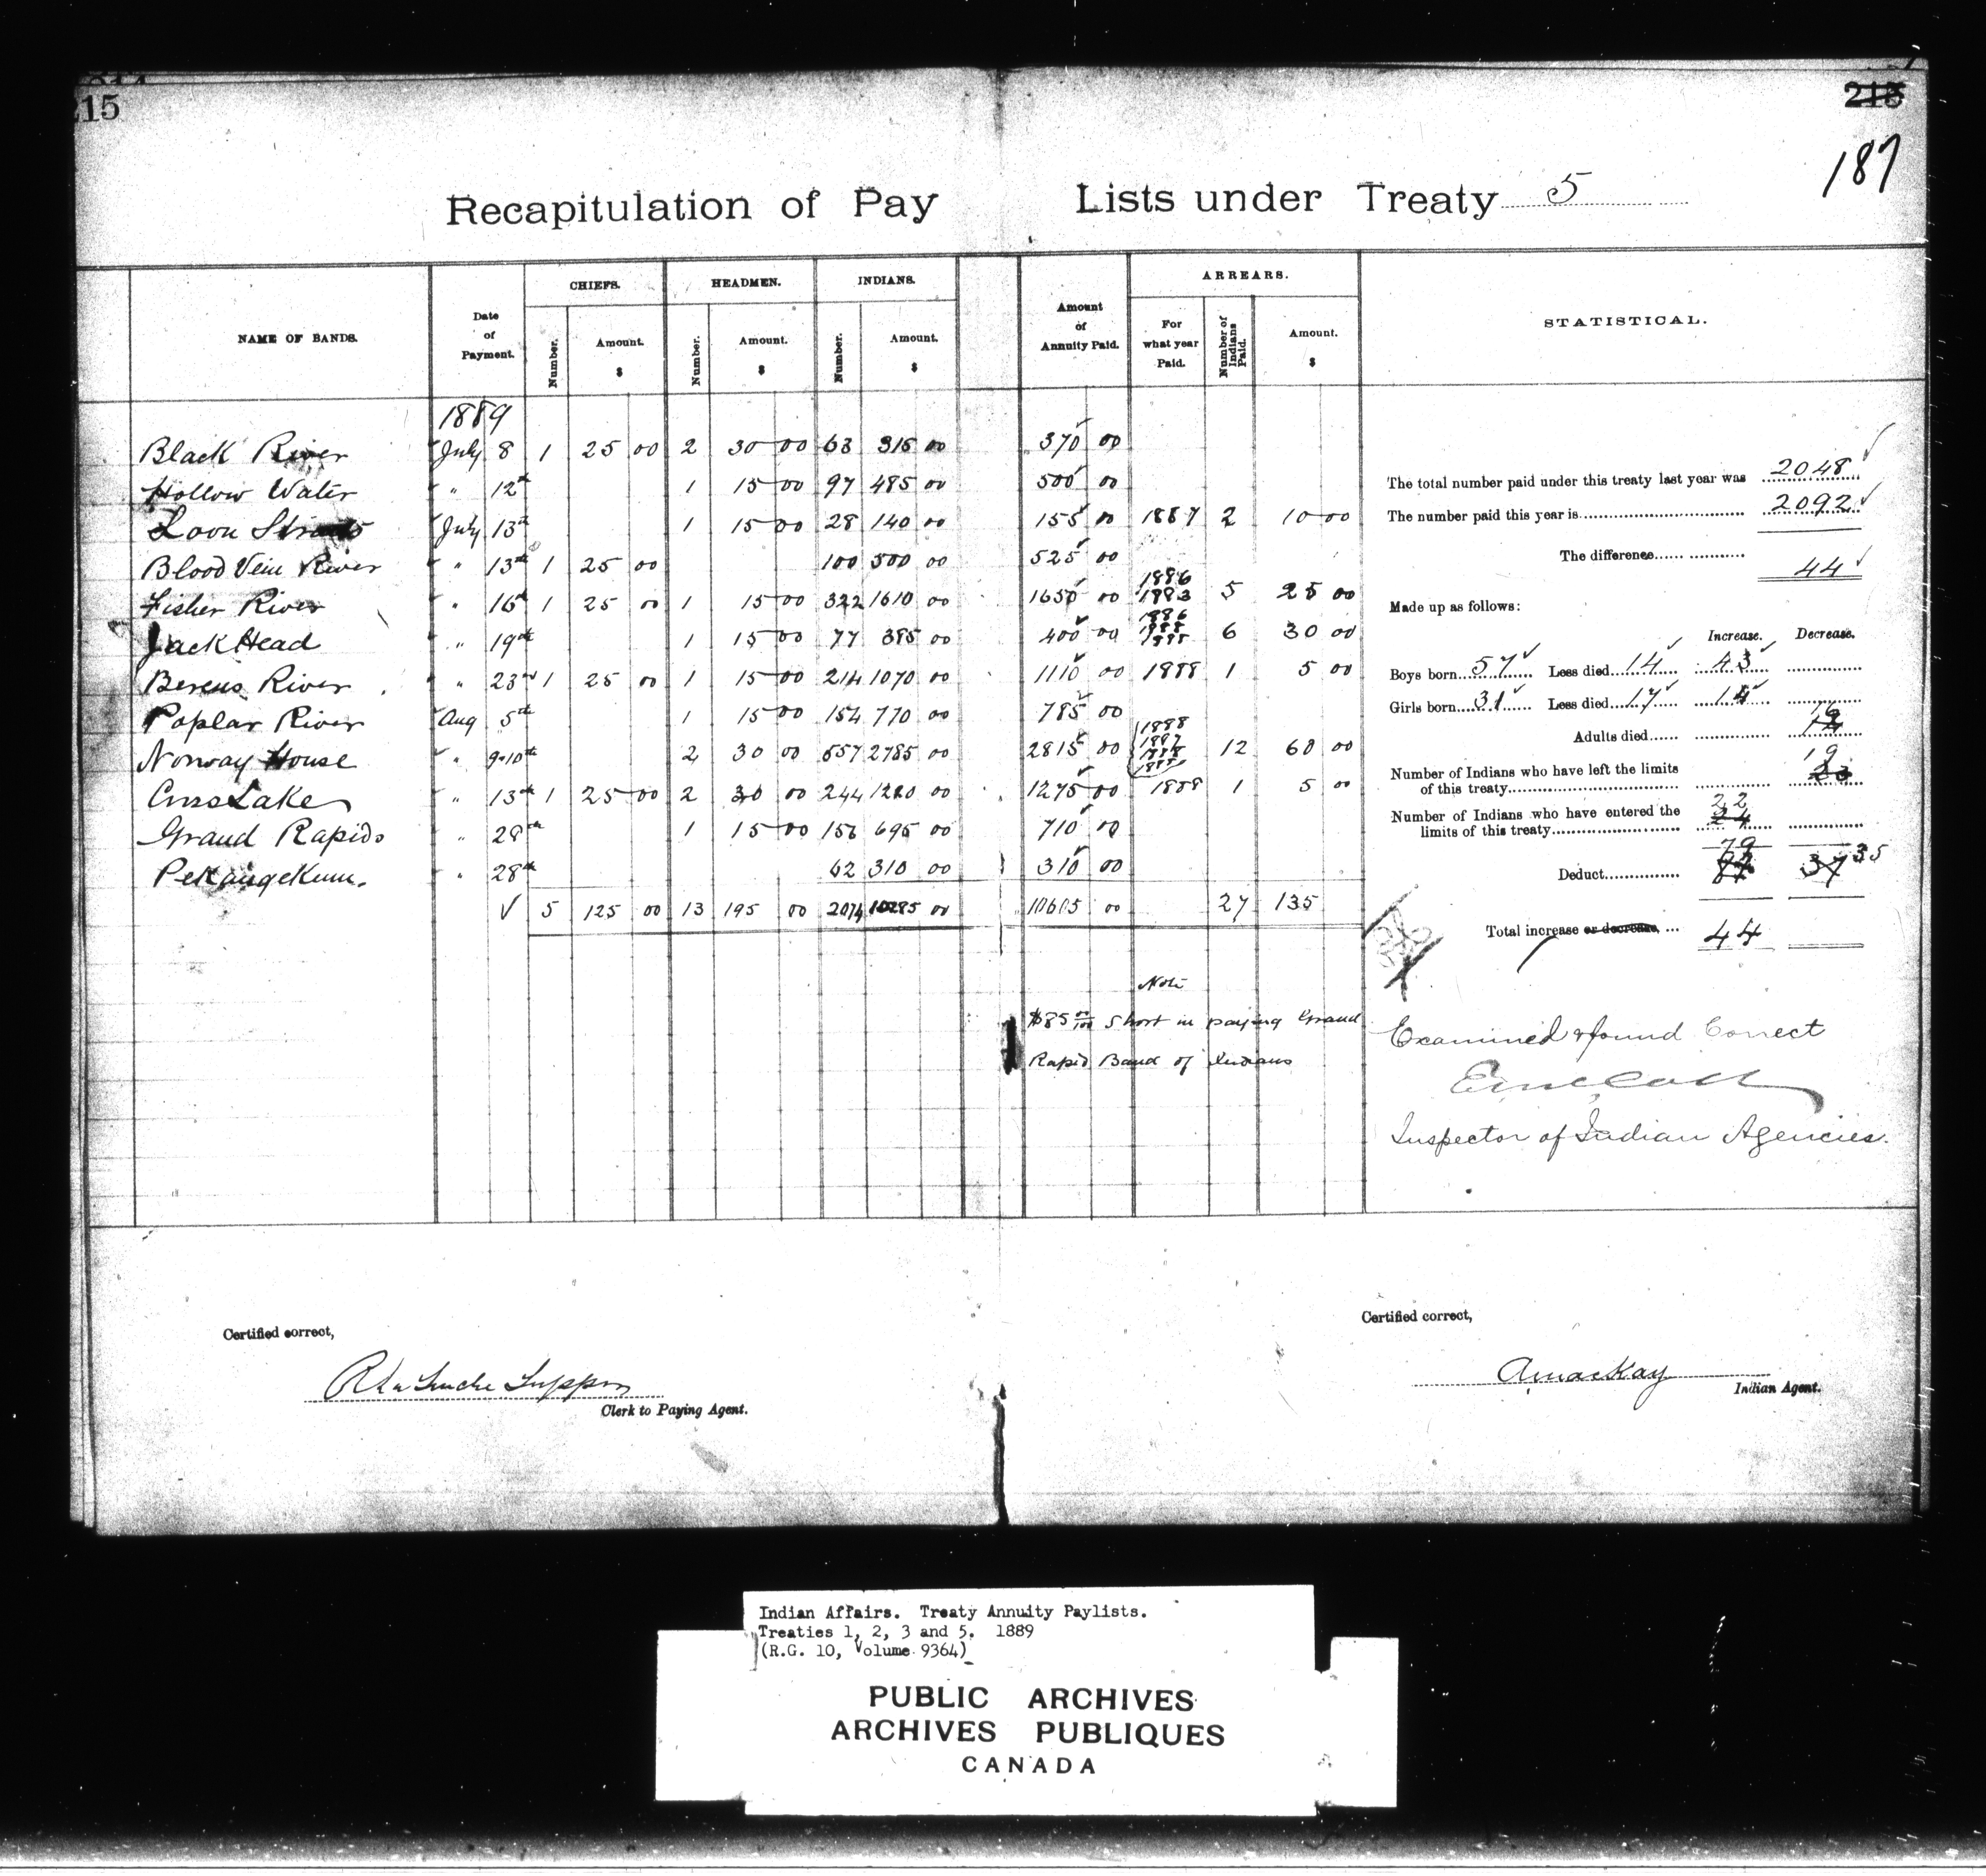 215
215
187
Recapitulation of Pay Lists under Treaty 5
NAME OF BANDS. Date of Payment. CHIEFS. HEADMEN. INDIANS. Amount of Annuity Paid. ARREARS. STATISTICAL.
Number. Amount. $ Number. Amount. $ Number. Amount. $ For what year Paid. Number of Indians Paid. Amount. $
1889
Black River July 8 1 25 00 2 30 00 63 315 00 370 00
Hollow Water " 12th 1 15 00 97 485 00 500 00
Loon Straits July 13th 1 15 00 28 140 00 155 00 1887 2 10 00
Blood Vein River " 13th 1 25 00 100 500 00 525 00
Fisher River " 16th 1 25 00 1 15 00 322 1610 00 1650 00 1886 1883 5 25 00
Jack Head " 19th 1 15 00 77 385 00 400 00 1886 6 30 00
Berens River " 23rd 1 25 00 1 15 00 214 1070 00 1110 00 1888 1 5 00
Poplar River Aug 5th 1 15 00 154 770 00 785 00
Norway House " 9-10th 2 30 00 557 2785 00 2815 00 1888 1887 12 60 00
Cross Lake " 13th 1 25 00 2 30 00 244 1220 00 1275 00 1888 1 5 00
Grand Rapids " 28th 1 15 00 156 695 00 710 00
Pekangekum. " 28th 62 310 00 310 00
5 125 00 13 195 00 2074 10285 00 10605 00 27 135
The total number paid under this treaty last year was 2048
The number paid this year is 2092
The difference 44
Made up as follows:
Increase. Decrease.
Boys born 57 Less died 14 43
Girls born 31 Less died 17 14
Adults died 16
Number of Indians who have left the limits
of this treaty 19
Number of Indians who have entered the
limits of this treaty 22 24
79 35
Deduct 37
Total increase or decrease, 44
Note
$85 00/100 Short in paying Grand
Rapid Band of Indians
Examined & found Correct
Inspector of Indian Agencies.
Certified correct,
Clerk to Paying Agent.
Certified correct,
A Mackay
Indian Agent.
Indian Affairs. Treaty Annuity Paylists.
Treaties 1, 2, 3 and 5. 1889
(R.G. 10, Volume 9364)
PUBLIC ARCHIVES
ARCHIVES PUBLIQUES
CANADA